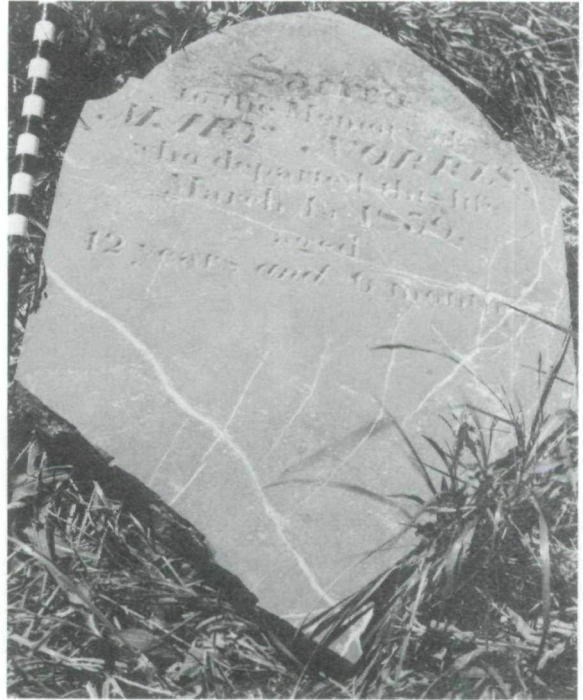 Sacred
to the Memory of
MARY NORRIS.
who departed this life
March 1st 1850.
aged
12 years and 9 months